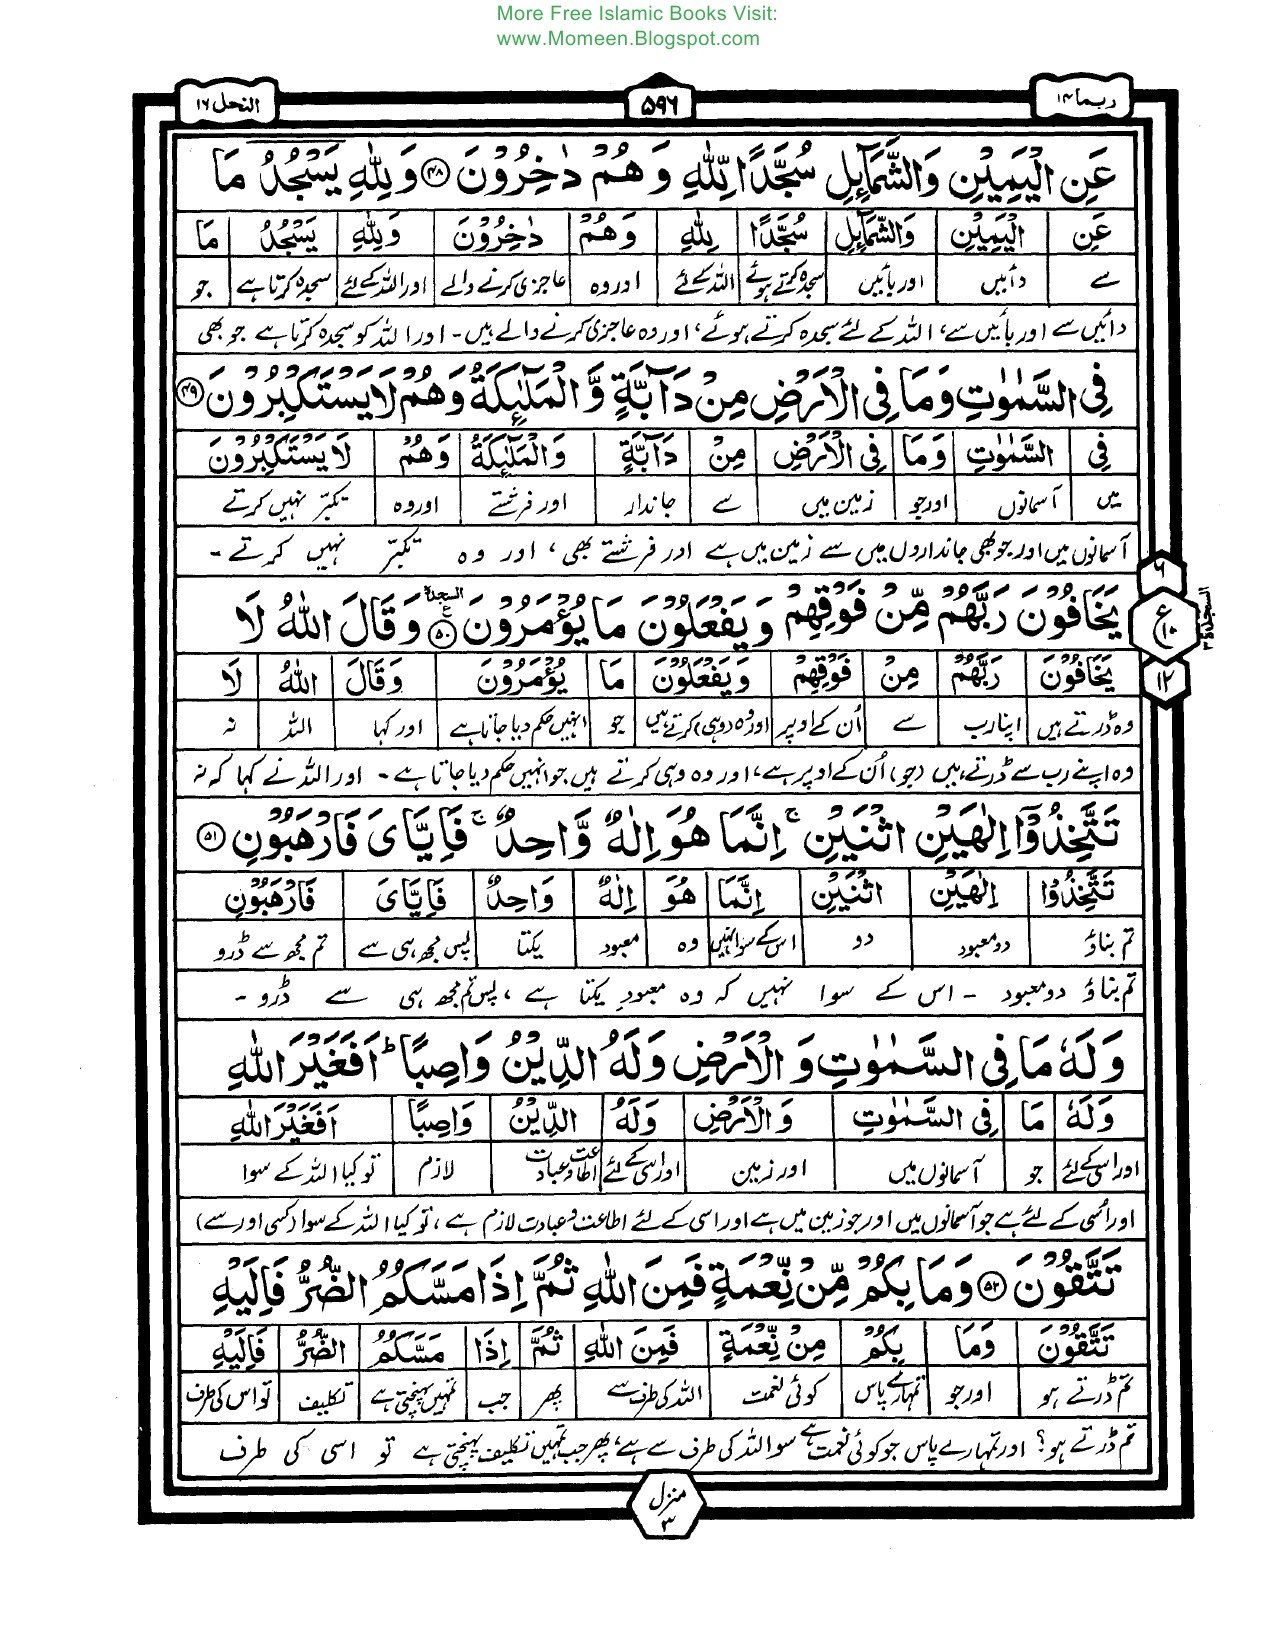 More Free Islamic Books Visit:
www.Momeen.Blogspot.com
ربما ۱۴ ۵۹۶ النحل ۱۶
عَنِ الْیَمِیْنِ وَالشَّمَآئِلِ سُجَّدًا لِّلّٰهِ وَهُمْ دٰخِرُوْنَ ۴۸ وَلِلّٰهِ یَسْجُدُ مَا
عَنِ الْیَمِیْنِ وَالشَّمَآئِلِ سُجَّدًا لِلّٰهِ وَهُمْ دٰخِرُوْنَ وَلِلّٰهِ یَسْجُدُ مَا
سے دائیں اور بائیں سجدہ کرتے ہوئے اللہ کے لئے اور وہ عاجزی کرنے والے اور اللہ کے لئے سجدہ کرتا ہے جو
دائیں سے اور بائیں سے، اللہ کے لئے سجدہ کرتے ہوئے، اور وہ عاجزی کرنے والے ہیں۔ اور اللہ کو سجدہ کرتا ہے جو بھی
فِی السَّمٰوٰتِ وَمَا فِی الْاَرْضِ مِنْ دَآبَّةٍ وَّ الْمَلٰٓئِکَةُ وَهُمْ لَا یَسْتَکْبِرُوْنَ ۴۹
فِی السَّمٰوٰتِ وَمَا فِی الْاَرْضِ مِنْ دَآبَّةٍ وَالْمَلٰٓئِکَةُ وَهُمْ لَا یَسْتَکْبِرُوْنَ
میں آسمانوں اور جو زمین میں سے جاندار اور فرشتے اور وہ تکبّر نہیں کرتے
آسمانوں میں اور جو بھی جانداروں میں سے زمین میں ہے اور فرشتے بھی، اور وہ تکبّر نہیں کرتے۔
یَخَافُوْنَ رَبَّهُمْ مِّنْ فَوْقِهِمْ وَیَفْعَلُوْنَ مَا یُؤْمَرُوْنَ ۵۰ السجدة ع وَقَالَ اللهُ لَا
۶ ع ۱۰ ۱۲ السجدة ۳
یَخَافُوْنَ رَبَّهُمْ مِنْ فَوْقِهِمْ وَیَفْعَلُوْنَ مَا یُؤْمَرُوْنَ وَقَالَ اللهُ لَا
وہ ڈرتے ہیں اپنا رب سے اُن کے اوپر اور وہ (وہی) کرتے ہیں جو انہیں حکم دیا جاتا ہے اور کہا اللہ نہ
وہ اپنے رب سے ڈرتے ہیں (جو) اُن کے اوپر ہے، اور وہ وہی کرتے ہیں جو انہیں حکم دیا جاتا ہے۔ اور اللہ نے کہا کہ نہ
تَتَّخِذُوْۤا اِلٰهَیْنِ اثْنَیْنِ ۚ اِنَّمَا هُوَ اِلٰهٌ وَّاحِدٌ ۚ فَاِیَّایَ فَارْهَبُوْنِ ۵۱
تَتَّخِذُوْا اِلٰهَیْنِ اثْنَیْنِ اِنَّمَا هُوَ اِلٰهٌ وَاحِدٌ فَاِیَّایَ فَارْهَبُوْنِ
تم بناؤ دو معبود دو اس کے سوا نہیں وہ معبود یکتا پس مجھ ہی سے تم مجھ سے ڈرو
تم بناؤ دو معبود۔ اس کے سوا نہیں کہ وہ معبودِ یکتا ہے، پس تم مجھ ہی سے ڈرو۔
وَلَهٗ مَا فِی السَّمٰوٰتِ وَ الْاَرْضِ وَلَهُ الدِّیْنُ وَاصِبًا ؕ اَفَغَیْرَ اللهِ
وَلَهٗ مَا فِی السَّمٰوٰتِ وَالْاَرْضِ وَلَهُ الدِّیْنُ وَاصِبًا اَفَغَیْرَ اللهِ
اور اسی کے لئے جو آسمانوں میں اور زمین اور اسی کے لئے اطاعت و عبادت لازم تو کیا اللہ کے سوا
اور اُسی کے لئے ہے جو آسمانوں میں اور جو زمین میں ہے اور اسی کے لئے اطاعت و عبادت لازم ہے، تو کیا اللہ کے سوا (کسی اور سے)
تَتَّقُوْنَ ۵۲ وَمَا بِکُمْ مِّنْ نِّعْمَةٍ فَمِنَ اللهِ ثُمَّ اِذَا مَسَّکُمُ الضُّرُّ فَاِلَیْهِ
تَتَّقُوْنَ وَمَا بِکُمْ مِنْ نِّعْمَةٍ فَمِنَ اللهِ ثُمَّ اِذَا مَسَّکُمُ الضُّرُّ فَاِلَیْهِ
تم ڈرتے ہو اور جو تمہارے پاس کوئی نعمت اللہ کی طرف سے پھر جب تمہیں پہنچتی ہے تکلیف تو اس کی طرف
تم ڈرتے ہو؟ اور تمہارے پاس جو کوئی نعمت ہے سو اللہ کی طرف سے ہے، پھر جب تمہیں تکلیف پہنچتی ہے تو اسی کی طرف
منزل ۳